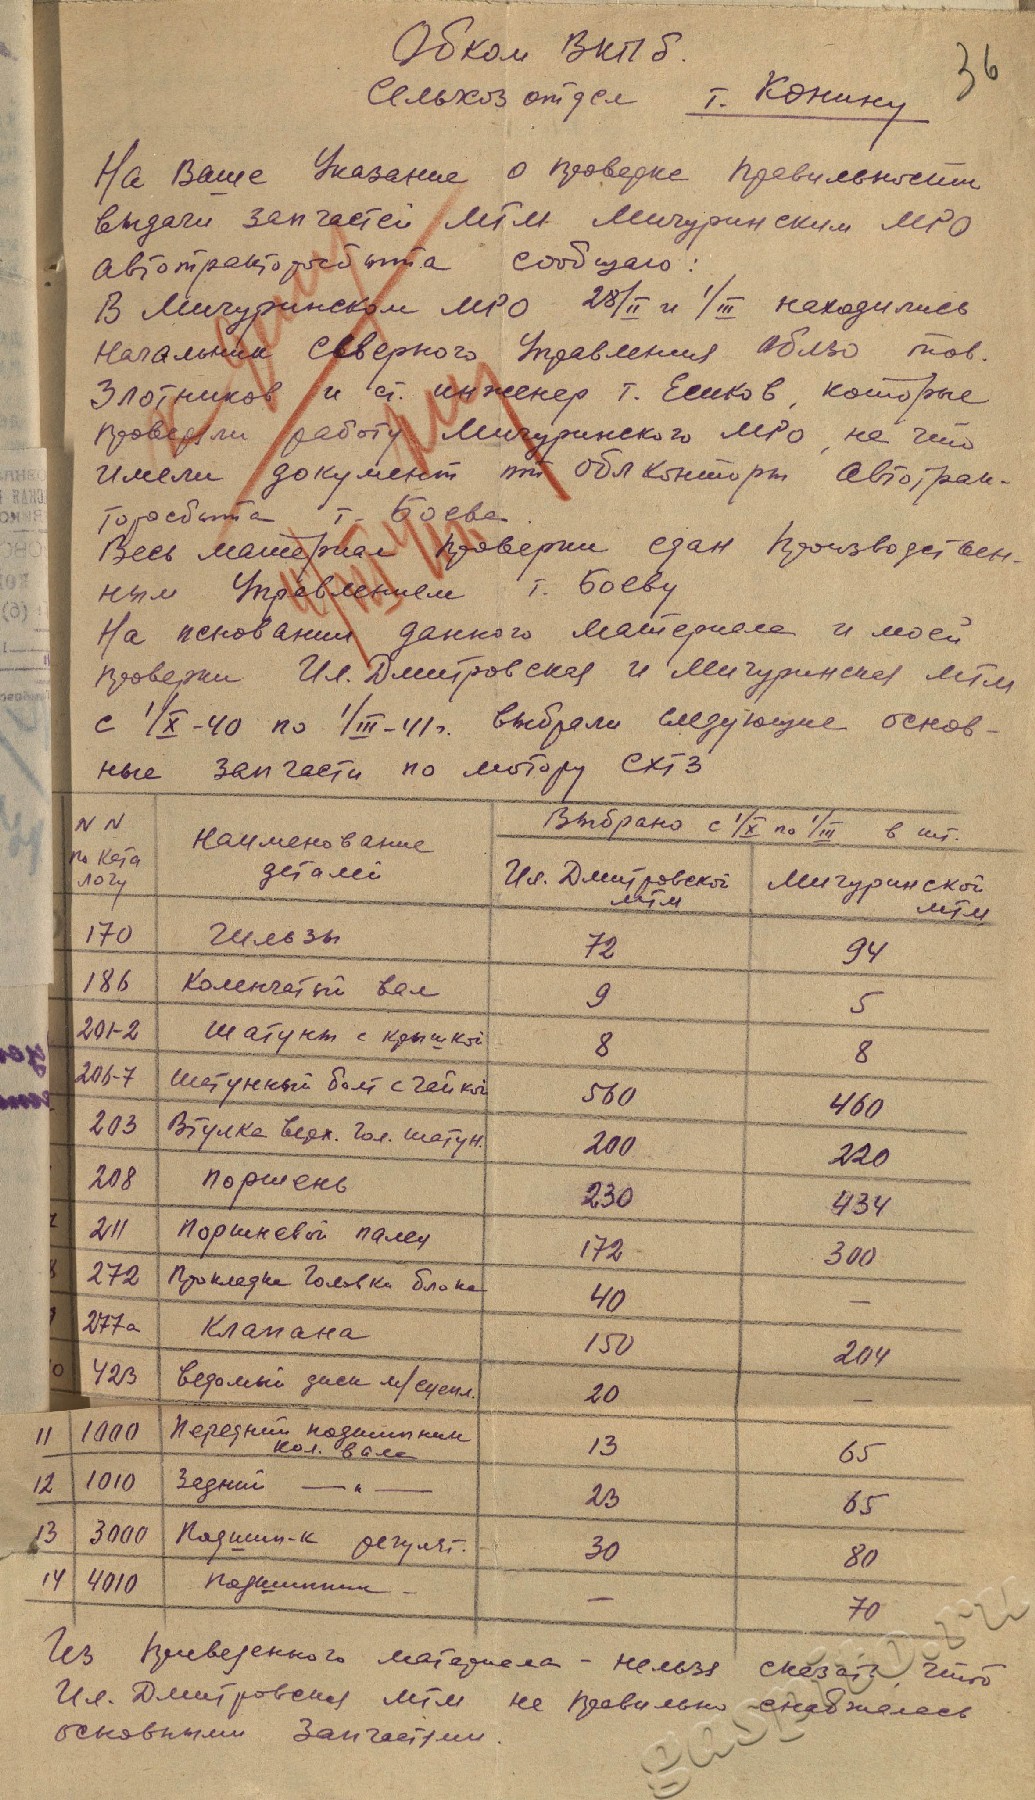 36
Обком ВКПб.
Сельхоз отдел т. Конину
На Ваше Указание о проверке правильности
выдачи запчастей МТМ Мичуринским МРО
Автотракторосбыта сообщаю:
В Мичуринском МРО 28/II и 1/III находились
Начальник Северного Управления Облзо тов.
Злотников и ст. инженер т. Ешков, которые
проверяли работу Мичуринского МРО, на что
имели документ от Облконторы Автотрак-
торосбыта т. Боева
Весь материал проверки сдан Производствен-
ным Управлением т. Боеву
На основании данного материала и моей
проверки Ил. Дмитровская и Мичуринская МТМ
с 1/X-40 по 1/III-41г. выбрали следующие основ-
ные запчасти по мотору СХТЗ
NN по Ката логу Наименование деталей Выбрано с 1/X по 1/III в шт.
Ил. Дмитровской МТМ Мичуринской МТМ
170 Гильзы 72 94
186 Коленчатый вал 9 5
201-2 Шатуны с крышкой 8 8
206-7 Шатунный болт с гайкой 560 460
203 Втулка верх. гол. шатун. 200 220
208 Поршень 230 434
211 Поршневой палец 172 300
272 Прокладка головки блока 40 —
277а Клапана 150 204
423 Ведомый диск м/сцепл. 20 —
11 1000 Передний подшипник кол. вала 13 65
12 1010 Задний —"— 23 65
13 3000 Подшип-к регулят. 30 80
14 4010 Подшипник — — 70
Из приведенного материала - нельзя сказать, что
Ил. Дмитровская МТМ не правильно снабжалась
основными запчастями.
gaspito.ru